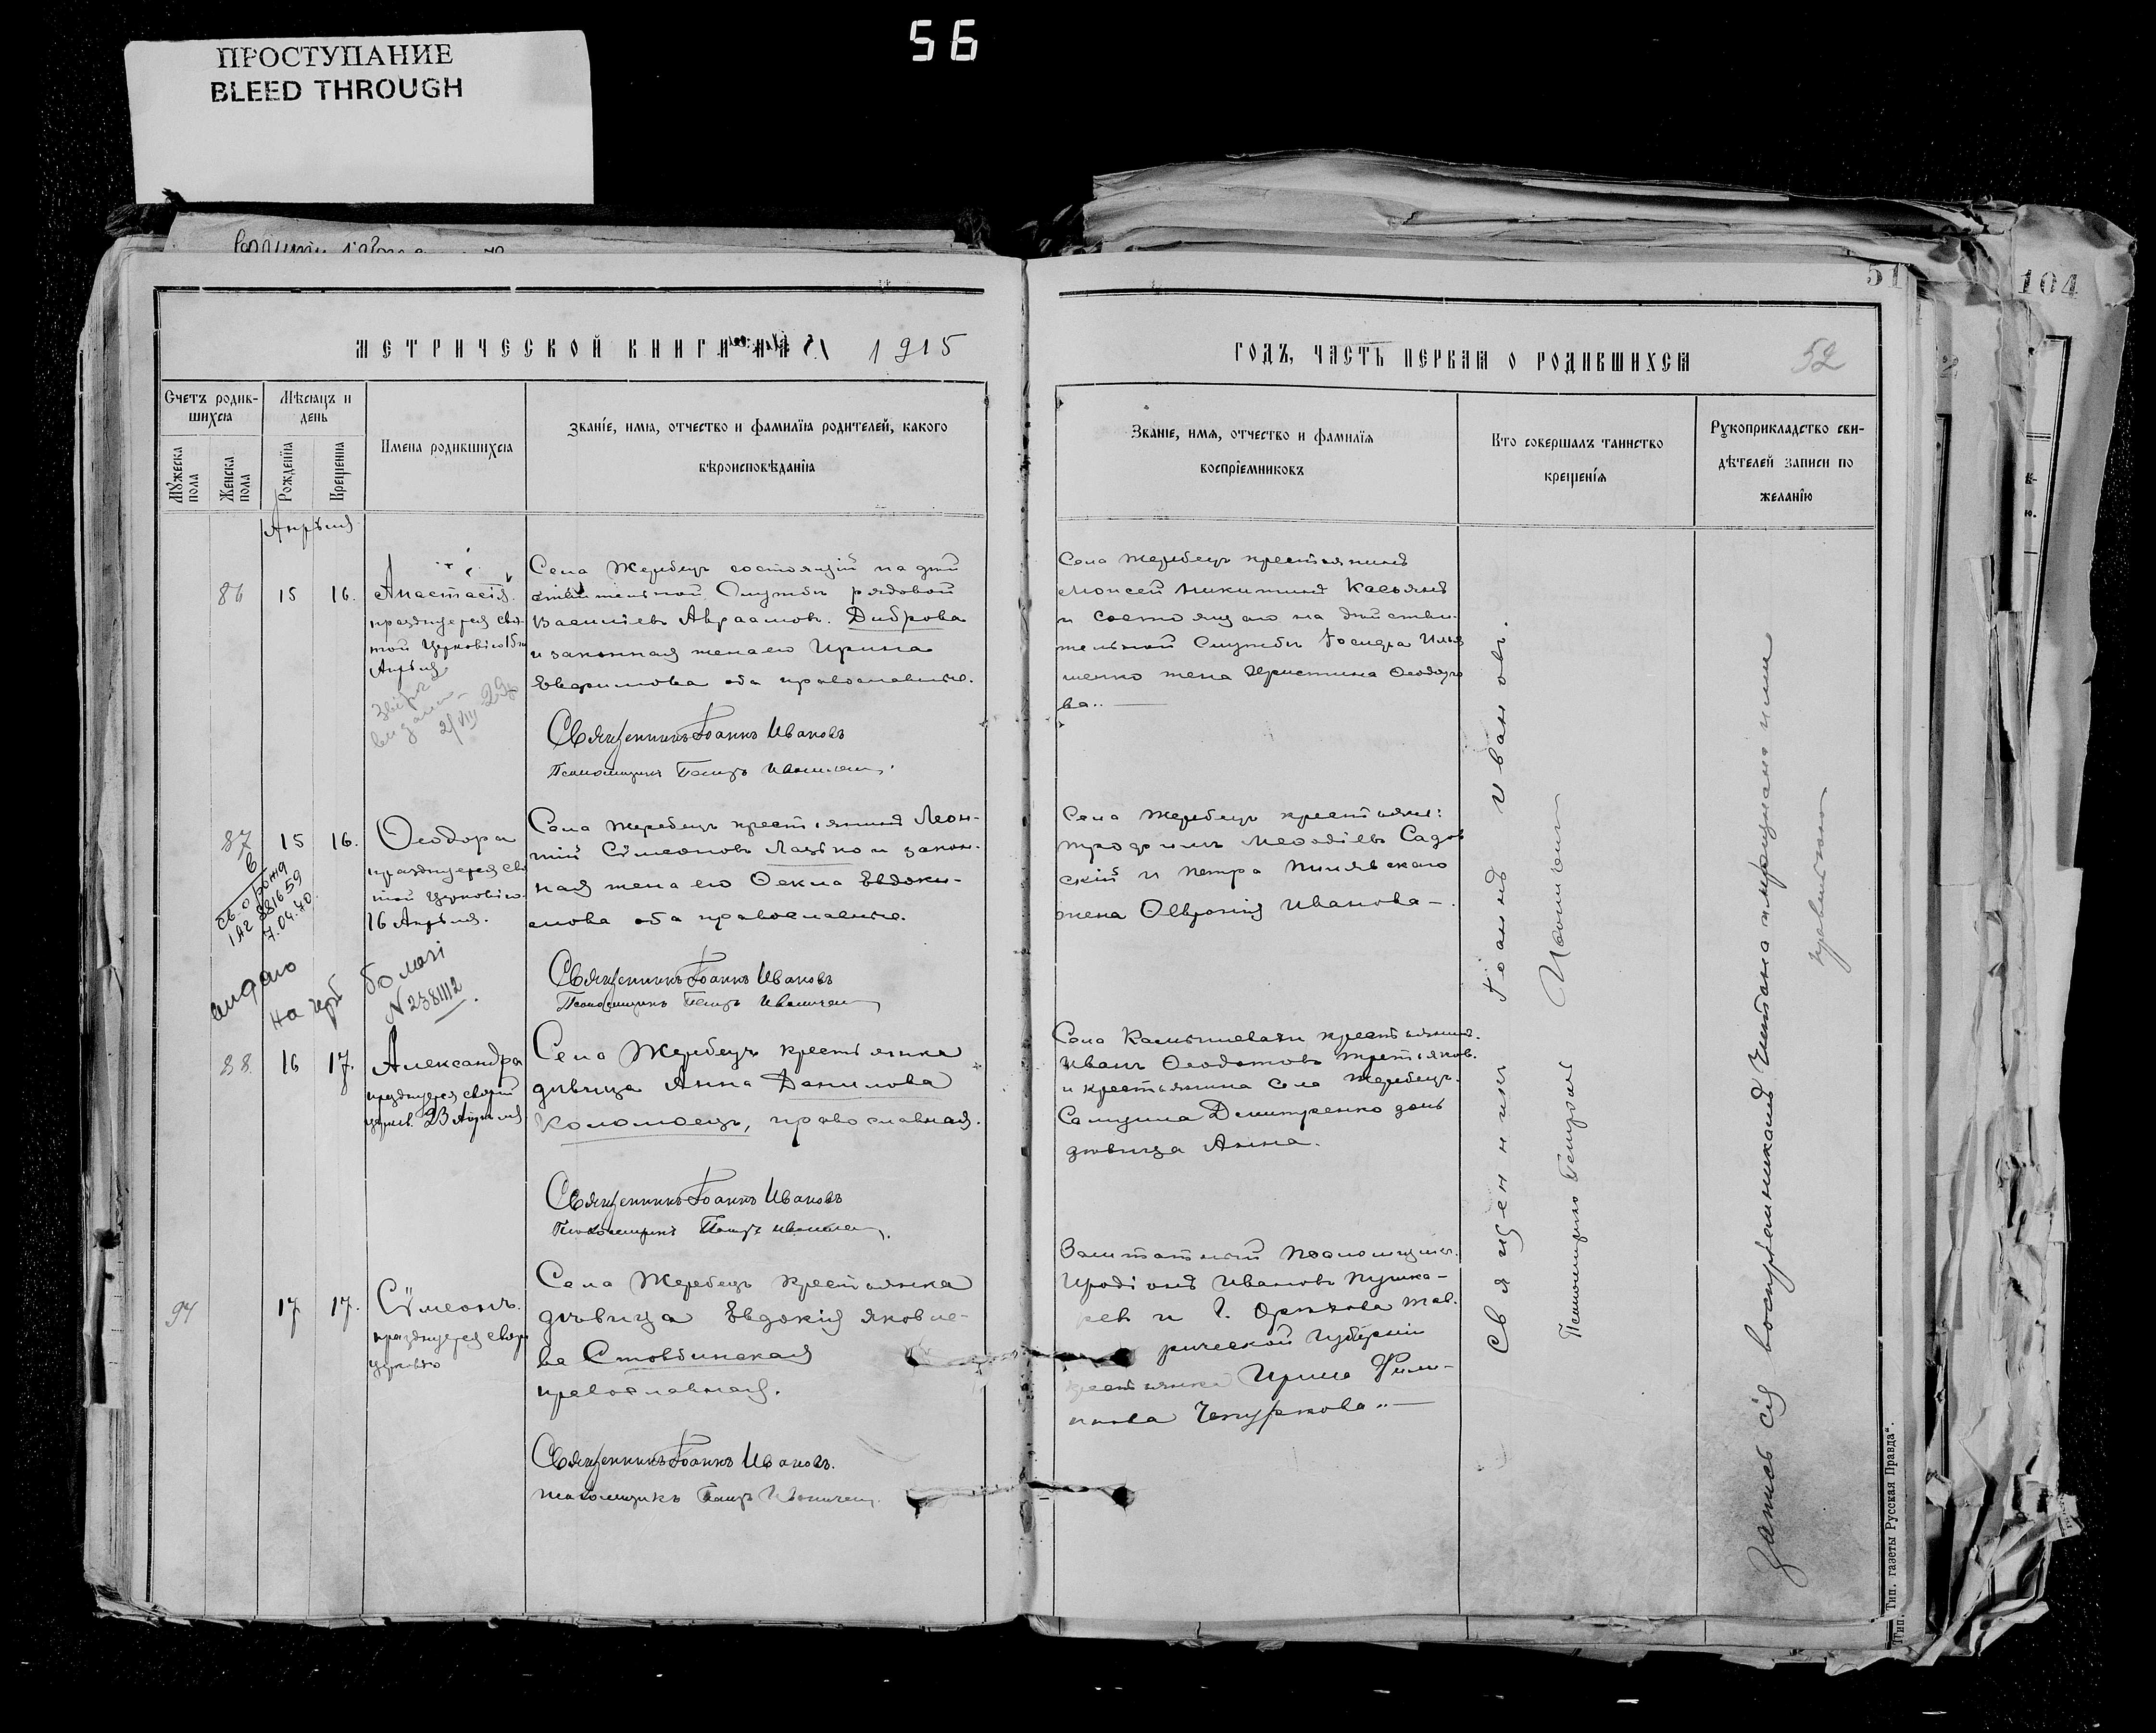 56
ПРОСТУПАНИЕ
BLEED THROUGH
51
104
МЕТРИЧЕСКОЙ КНИГИ НА 1915
ГОДЪ, ЧАСТЬ ПЕРВАЯ О РОДИВШИХСЯ
52
Счетъ родив-
шихся
Мѣсяцъ и
день
Мужеска
пола
Женска
пола
Рожденія
Крещенія
Имена родившихся
Званіе, имя, отчество и фамилія родителей, какого
вѣроисповѣданія
Званіе, имя, отчество и фамилія
воспріемниковъ
Кто совершалъ таинство
крещенія
Рукоприкладство сви-
дѣтелей записи по
желанію
Апрѣля
86
15
16.
Анастасія.
празднуется свя-
той Церковію
Апрѣля
2/VIII 29
Села Жеребецъ состоящій на дѣй
ствительной Службѣ рядовой
Василіевъ Авраамовъ. Диброва
и законная жена его Ирина
Евфимова оба православные.
Священникъ Іоаннъ Ивановъ
Псаломщикъ Петръ
Села Жеребецъ крестьянинъ
Моисей Никитинъ Касьянъ
и состоящаго на дѣйстви-
тельной Службѣ
жена Христина Ѳеодоро
ва..
87
15
16.
Ѳеодора
празднуется свя
той Церковію
16 Апрѣля.
7.04.40.
видано
N 238112
Села Жеребецъ крестьянинъ Леон-
тій Сѵмеоновъ Лазько и закон-
ная жена его Ѳекла Евдоки-
мова оба православные.
Священникъ Іоаннъ Ивановъ
Псаломщикъ Петръ
Села Жеребецъ крестьяне:
Трофимъ Меѳодіевъ Садов
скій и Петра
жена Ивановна.
88.
16
17.
Александра
празднуется святой
церков. 23 Апрѣля
Села Жеребецъ крестьянка
дѣвица Анна Данилова
Коломоецъ, православная.
Священникъ Іоаннъ Ивановъ
Псаломщикъ Петръ
Села Камышеваги крестьянинъ.
Иванъ Ѳеодотовъ Третьяков.
и крестьянина Села Жеребецъ.
Самуила Дмитренко дочь
дѣвица Анна.
94
17
17.
Сѵмеонъ.
празднуется свят
церковію
Села Жеребецъ крестьянка
дѣвица Евдокія Яковле-
ва Стовбинская
православная.
Священникъ Іоаннъ Ивановъ.
Псаломщикъ Петръ
Заштатный Псаломщикъ.
Иродіонъ Ивановъ Пушка-
рев и Г. Орѣхова Тав.
рической Губерніи
крестьянка Ирина Фили-
пова Чепуркова..
Священникъ Іоаннъ Ивановъ.
Псаломщикъ Петръ
Запись сія воспріемникамъ читана
Тип. Тип. газеты Русская Правда“.